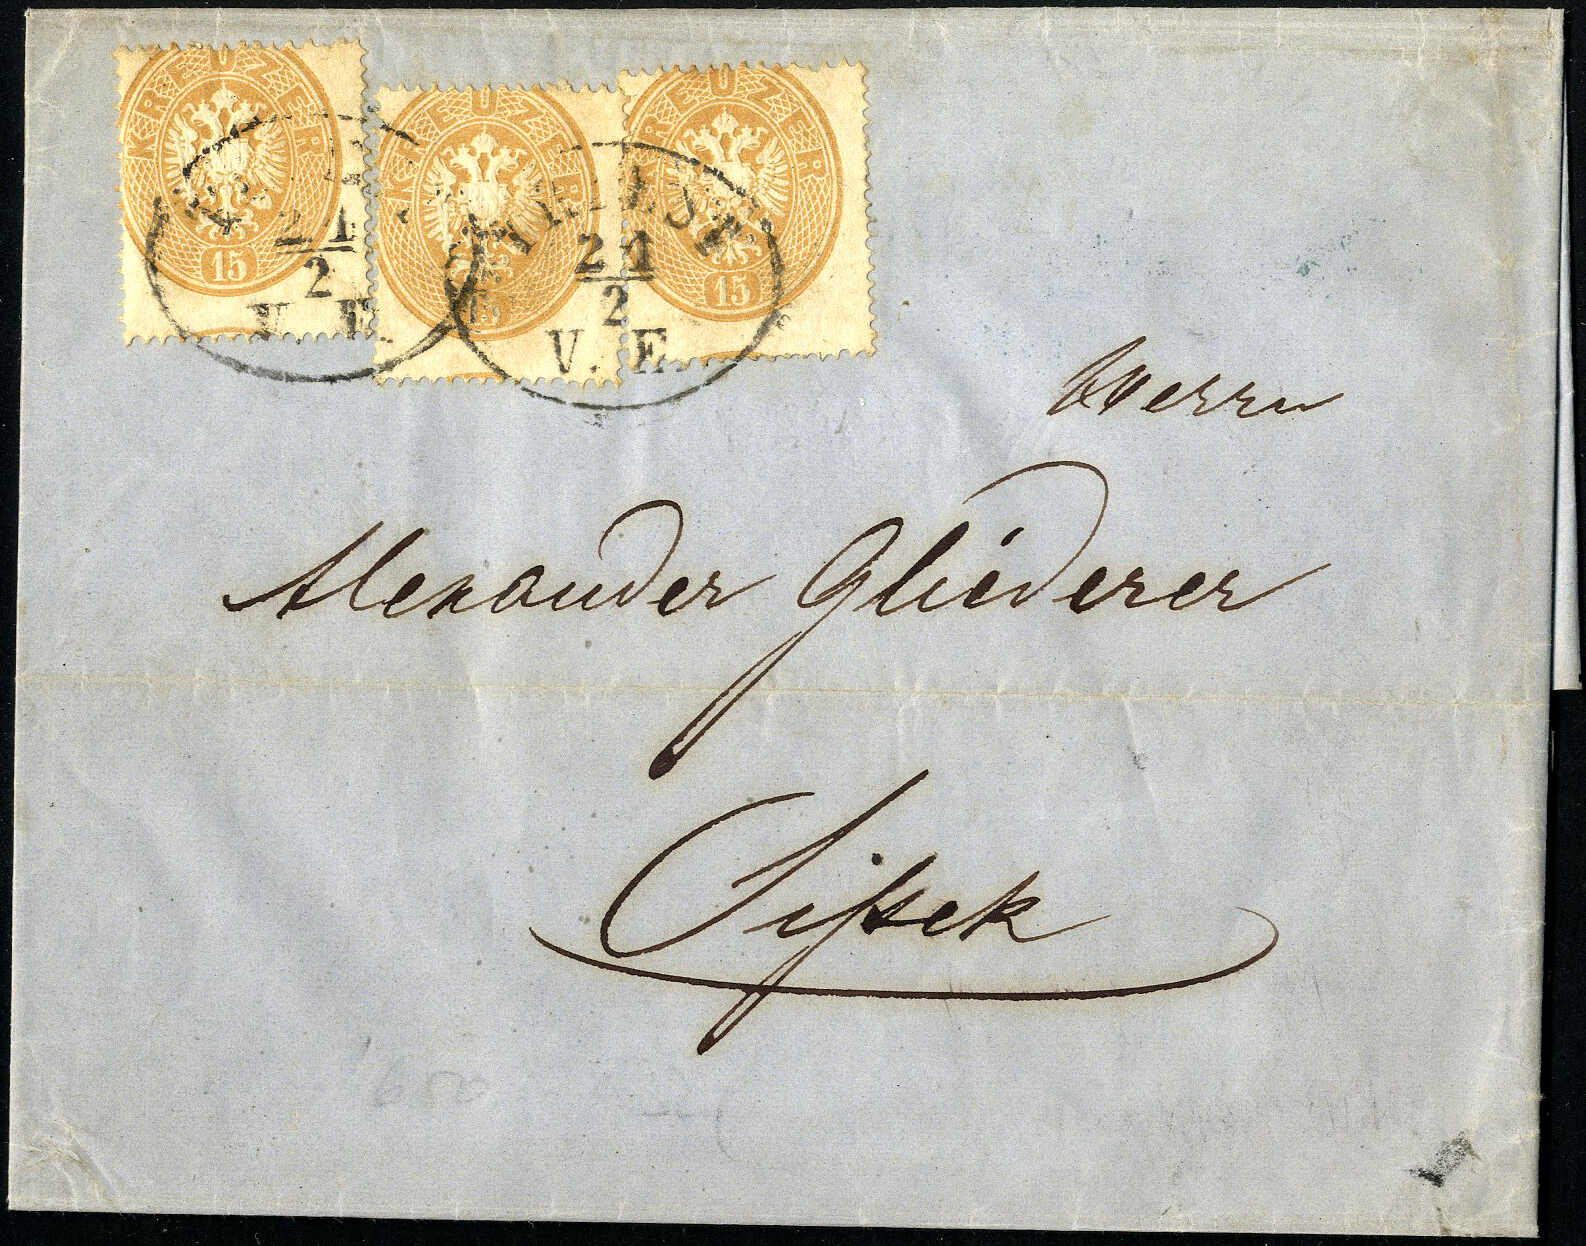 KREUZER
15
KREUZER
15
KREUZER
15
21
2
V. E.
TRIEST
21
2
V. E.
Herrn
Alexander Gliederer
Sissek
650